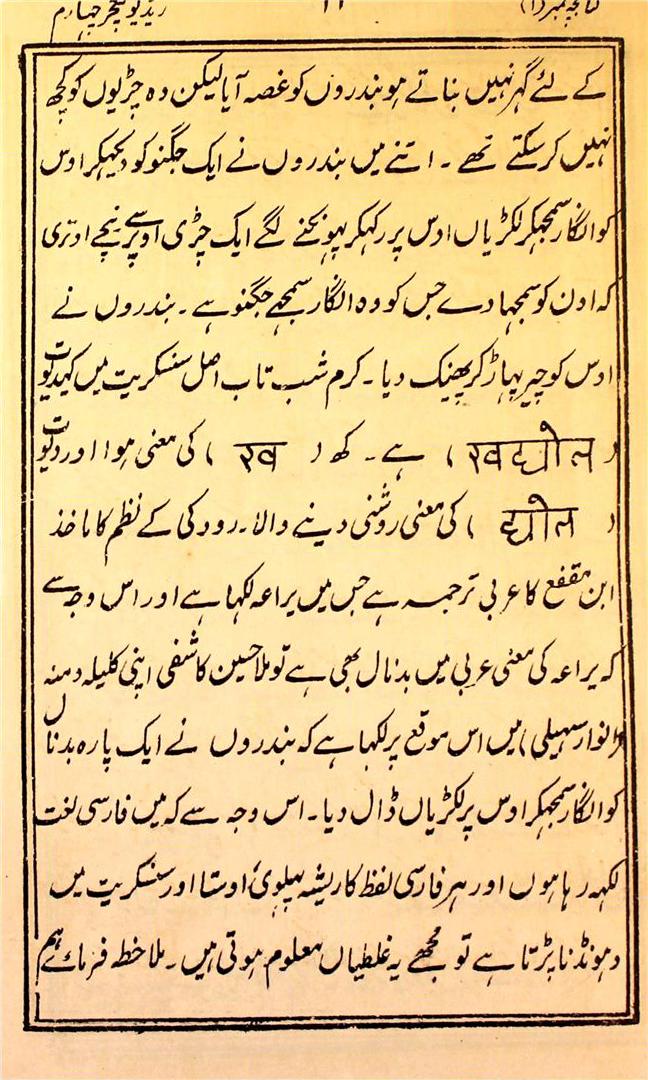 کتابچہ نمبر (۱) ۱۱ ریڈیو لکچر چہارم
کے لئے گھر نہیں بناتے ہو بندروں کو غصہ آیا لیکن وہ چڑیوں کو کچھ
نہیں کر سکتے تھے ۔ اتنے میں بندروں نے ایک جگنو کو دیکھکر اوس
کو انگار سمجھکر لکڑیاں اوس پر رکھکر پھونکنے لگے ایک چڑی اوپر سے نیچے اوتری
کہ اون کو سمجھا دے جس کو وہ انگار سمجھے جگنو ہے ۔ بندروں نے
اوس کو چیر پھاڑ کر پھینک دیا ۔ کرم شب تاب اصل سنسکریت میں کھدیوت
( खद्योत ) ہے ۔ کھ ( ख ) کی معنی ہوا اور دیوت
( द्योत ) کی معنی روشنی دینے والا ۔ رودکی کے نظم کا ماخذ
ابن مقفع کا عربی ترجمہ ہے جس میں یراعہ لکھا ہے اور اس وجہ سے
کہ یراعہ کی معنی عربی میں بدنال بھی ہے تو ملا حسین کاشفی اپنی کلیلہ دمنہ
(انوار سہیلی) میں اس موقع پر لکھا ہے کہ بندروں نے ایک پارہ بدنال
کو انگار سمجھکر اوس پر لکڑیاں ڈال دیا ۔ اس وجہ سے کہ میں فارسی لغت
لکھہ رہا ہوں اور ہر فارسی لفظ کا ریشہ پہلوی ٔ اوستا اور سنسکریت میں
ڈھونڈنا پڑتا ہے تو مجھے یہ غلطیاں معلوم ہوتی ہیں ۔ ملاحظہ فرمائے ہم